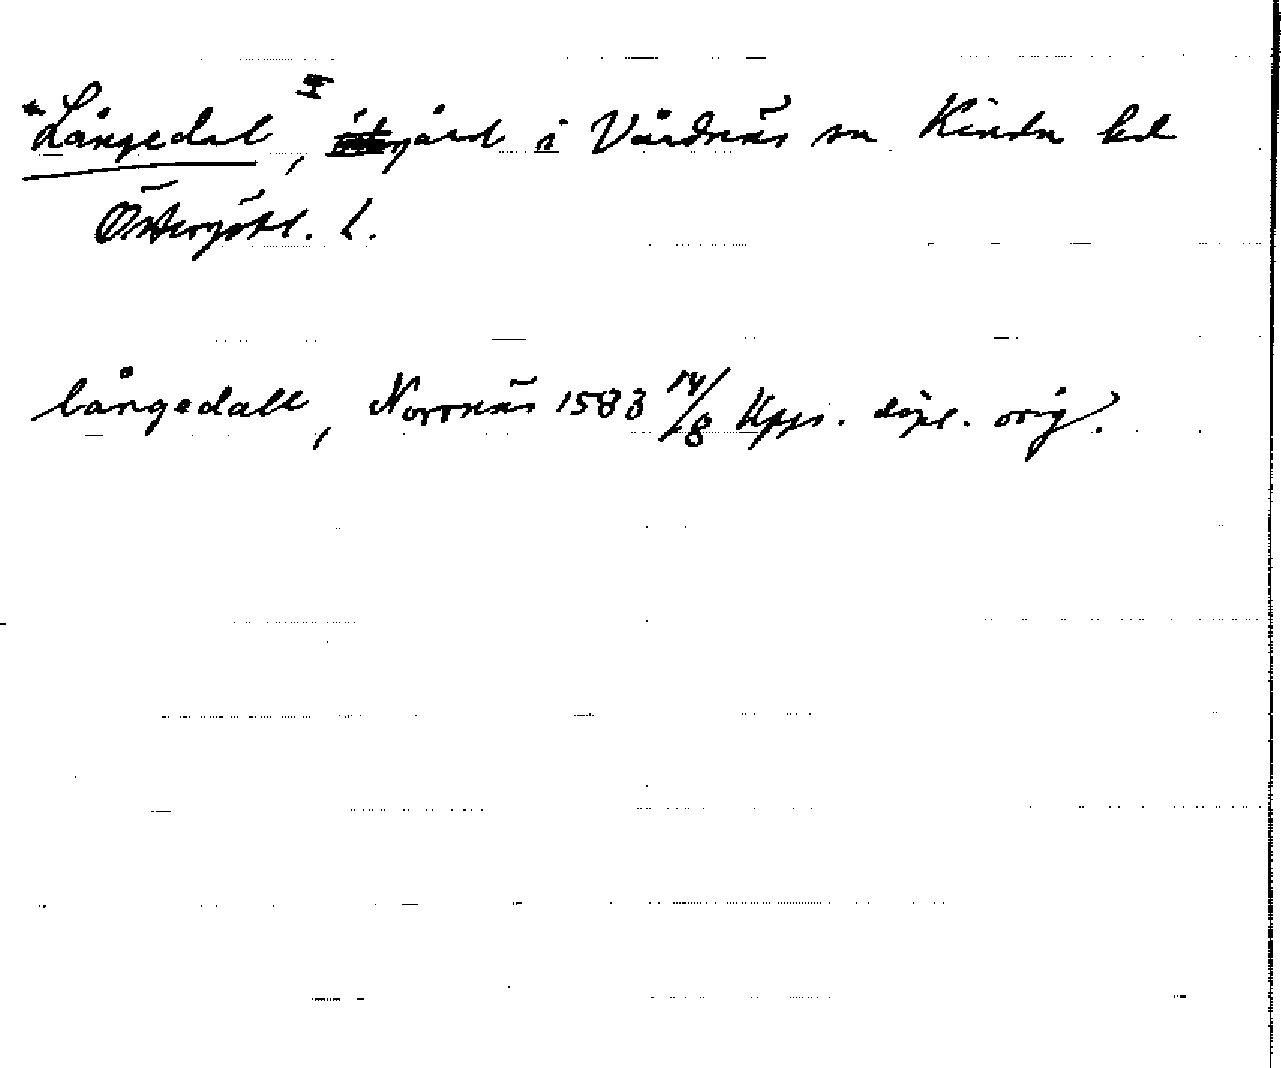 *Långedal, gård i Vårdnäs sn Kinda hd
Östergötl. L.
långedall, Norrnäs 1583 14/8 Upps. dipl. orig.